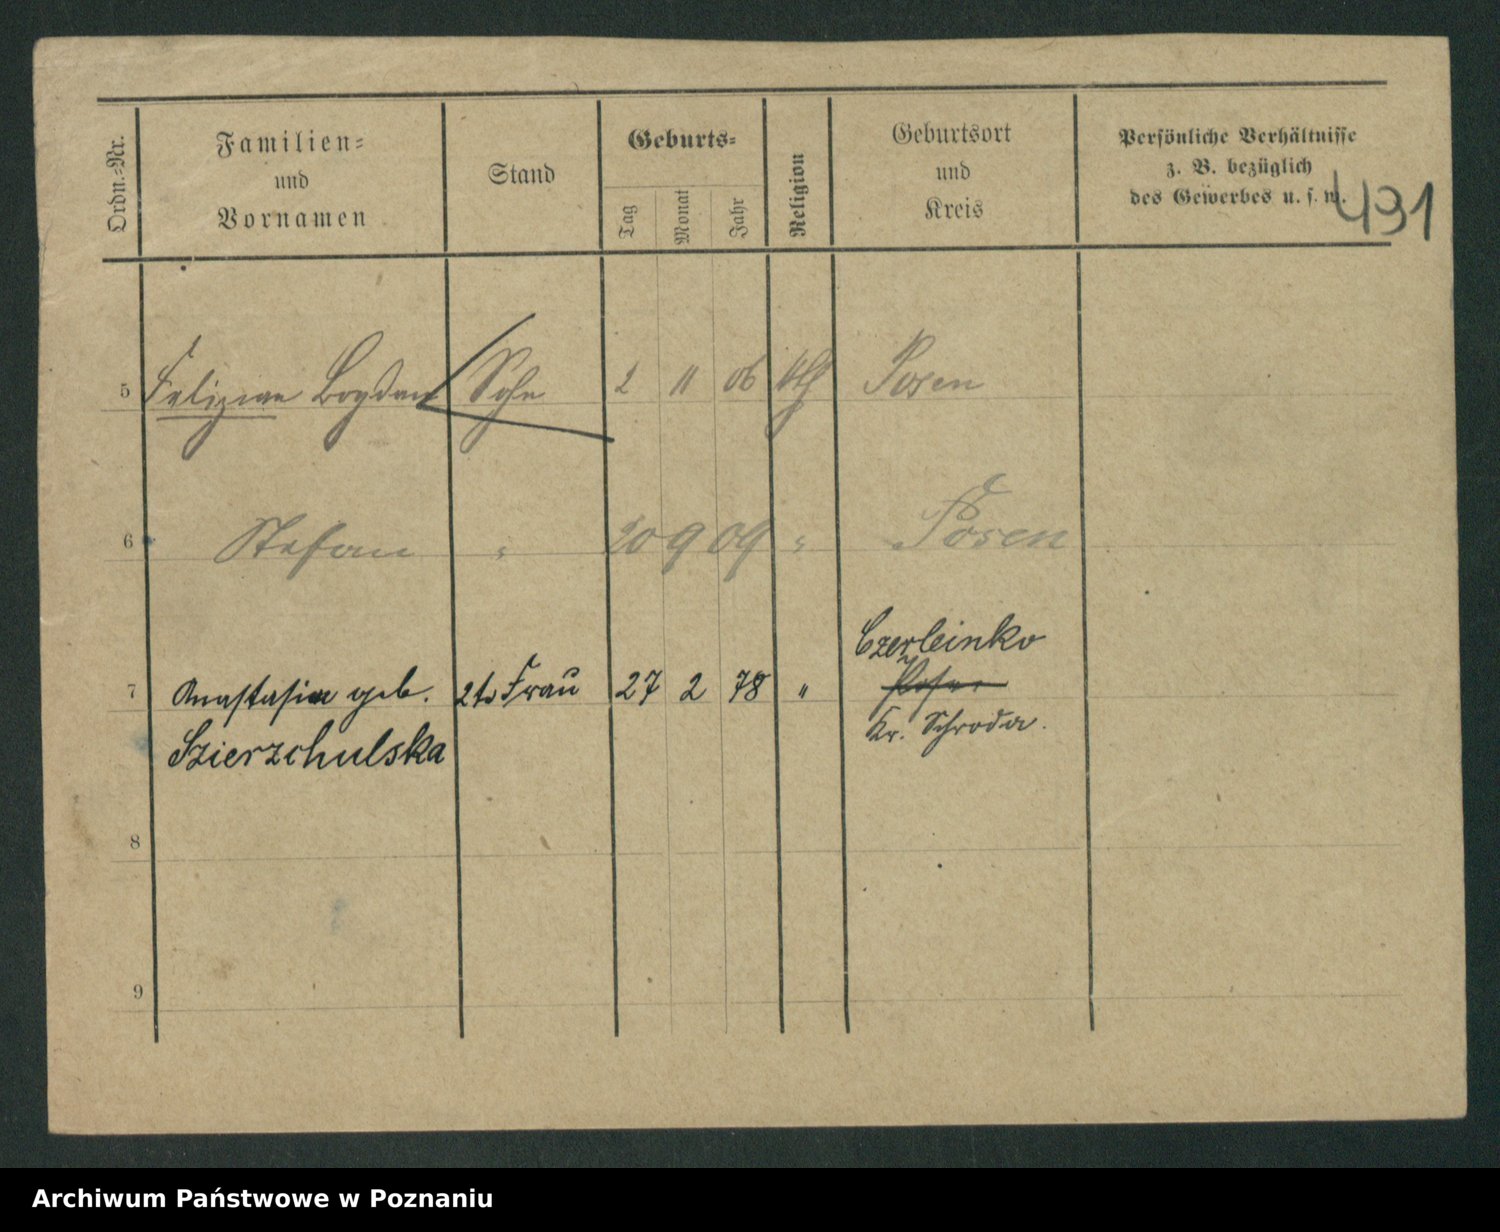 Ordn.-Nr.
Familien-
und
Vornamen
Stand
Geburts-
Tag
Monat
Jahr
Religion
Geburtsort
und
Kreis
Persönliche Verhältnisse
z. B. bezüglich
des Gewerbes u. s. w.
431
5 Felizian Bogdan Sohn 2 11 06 kth Posen
6 Stefan " 20 9 09 " Posen
Czerleinko
7 Anastasia geb. 2te Frau 27 2 78 " Posen
Szierzchulska Kr. Schroda.
8
9
Archiwum Państwowe w Poznaniu